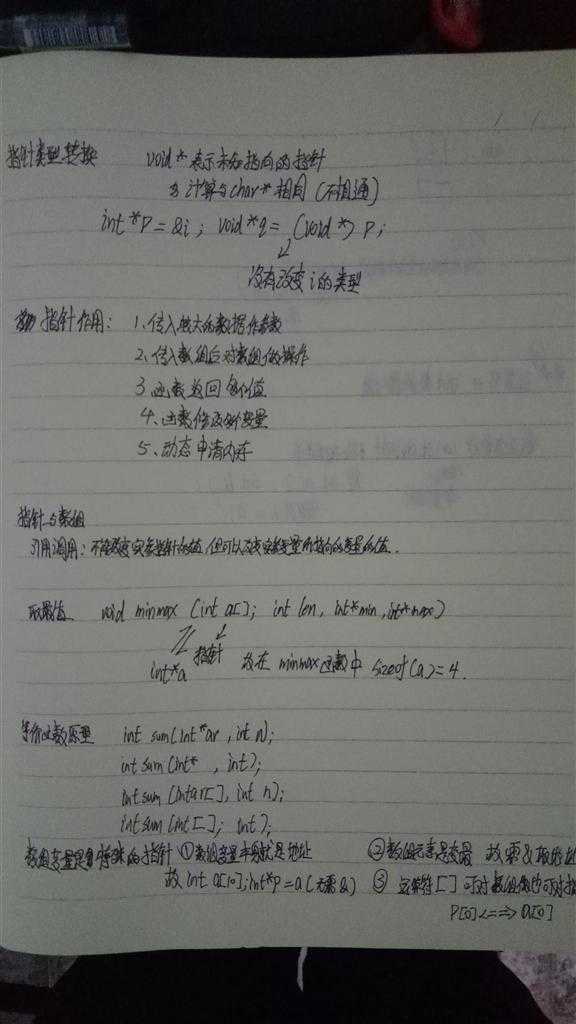 指针类型转换 void* 表示未知指向的指针
计算与char*相同(不相通)
int*P=&i; void*q=(void*)P;
没有改变i的类型
指针作用: 1、传入较大的数据作参数
2、传入数组后对数组做操作
3 函数返回多个值
4、函数修改多个变量
5、动态申请内存
指针与数组
引用调用:不能改变实参指针的值,但可以改变实参变量所指向的变量的值.
取最值 void minmax (int a[]; int len, int*min, int*max)
int*a 指针 故在 minmax函数中 sizeof(a)=4.
等价函数原型 int sum(int*ar, int n);
int sum(int* , int);
int sum(int ar[], int n);
int sum(int[]; int);
数组变量是特殊的指针 ①数组变量本身就是地址 ②数组元素是变量 故需&取地址
故 int a[10]; int*P=a(无需&) ③ 运算符[]可对数组做也可对指
P[0]<==>a[0]